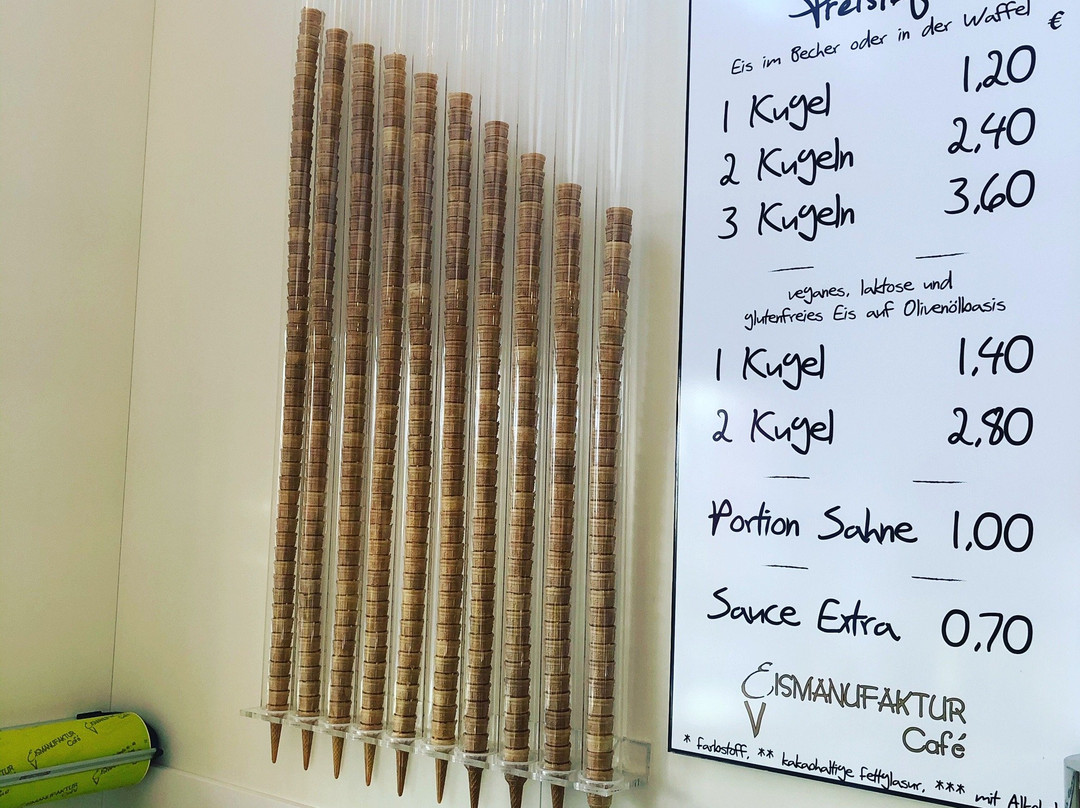 Eis im Becher oder in der Waffel €
1 Kugel 1,20
2 Kugeln 2,40
3 Kugeln 3,60
veganes, laktose und
glutenfreies Eis auf Olivenölbasis
1 Kugel 1,40
2 Kugel 2,80
Portion Sahne 1,00
Sauce Extra 0,70
EISMANUFAKTUR
Café
* farbstoff, ** kakaohaltige fettglasur, *** mit
EISMANUFAKTUR
Café